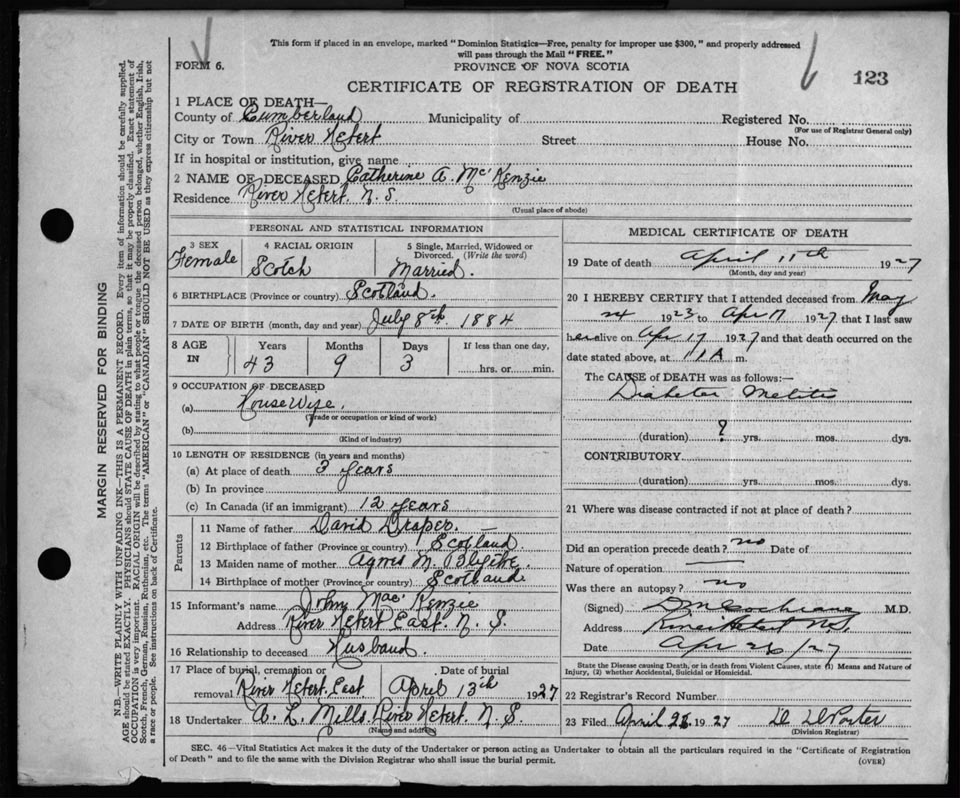 This form if placed in an envelope, marked "Dominion Statistics—Free, penalty for improper use $300," and properly addressed
will pass through the Mail "FREE."
FORM 6.
PROVINCE OF NOVA SCOTIA
123
CERTIFICATE OF REGISTRATION OF DEATH
1 PLACE OF DEATH—
County of Cumberland Municipality of Registered No.
(For use of Registrar General only)
City or Town River Hebert Street House No.
If in hospital or institution, give name
2 NAME OF DECEASED Catherine A. McKenzie
Residence River Hebert. N. S.
(Usual place of abode)
PERSONAL AND STATISTICAL INFORMATION
3 SEX 4 RACIAL ORIGIN 5 Single, Married, Widowed or
Divorced. (Write the word)
Female Scotch Married.
6 BIRTHPLACE (Province or country) Scotland.
7 DATE OF BIRTH (month, day and year) July 8th 1884
8 AGE IN Years Months Days If less than one day,
43 9 3 hrs. or min.
9 OCCUPATION OF DECEASED
(a) House Wife.
(Trade or occupation or kind of work)
(b)
(Kind of industry)
10 LENGTH OF RESIDENCE (in years and months)
(a) At place of death 3 years
(b) In province
(c) In Canada (if an immigrant) 12 years
Parents
11 Name of father David Draper.
12 Birthplace of father (Province or country) Scotland.
13 Maiden name of mother Agnes M. Blythe.
14 Birthplace of mother (Province or country) Scotland
15 Informant's name John Mac Kenzie
Address River Hebert East. N. S.
16 Relationship to deceased Husband.
17 Place of burial, cremation or Date of burial
removal River Hebert. East April 13th 1927
18 Undertaker A. L. Mills. River Hebert. N. S.
(Name and address)
MEDICAL CERTIFICATE OF DEATH
19 Date of death April 11th 1927
(Month, day and year)
20 I HEREBY CERTIFY that I attended deceased from May
24 1923 to Apr 1927 that I last saw
her alive on Apr 1927 and that death occurred on the
date stated above, at 11 A m.
The CAUSE of DEATH was as follows:—
Diabetes Melitis
(duration) ? yrs. mos. dys.
CONTRIBUTORY
(duration) yrs. mos. dys.
21 Where was disease contracted if not at place of death?
Did an operation precede death? no Date of
Nature of operation —
Was there an autopsy? no
(Signed) Cochrane M.D.
Address River Hebert N.S.
Date Apr 26/27
State the Disease causing Death, or in death from Violent Causes, state (1) Means and Nature of
Injury, (2) whether Accidental, Suicidal or Homicidal.
22 Registrar's Record Number
23 Filed April 1927 Porter
(Division Registrar)
SEC. 46—Vital Statistics Act makes it the duty of the Undertaker or person acting as Undertaker to obtain all the particulars required in the "Certificate of Registration
of Death" and to file the same with the Division Registrar who shall issue the burial permit.
(OVER)
MARGIN RESERVED FOR BINDING
N.B.—WRITE PLAINLY WITH UNFADING INK—THIS IS A PERMANENT RECORD. Every item of information should be carefully supplied.
AGE should be stated EXACTLY. PHYSICIANS should STATE CAUSE OF DEATH in plain terms, so that it may be properly classified. Exact statement of
OCCUPATION is very important. RACIAL ORIGIN will be described by stating to what people or tongue the deceased person belonged, whether English, Irish,
Scotch, French, German, Russian, Ruthenian, etc. The terms "AMERICAN" or "CANADIAN" SHOULD NOT BE USED as they express citizenship but not
a race or people. See instructions on back of Certificate.